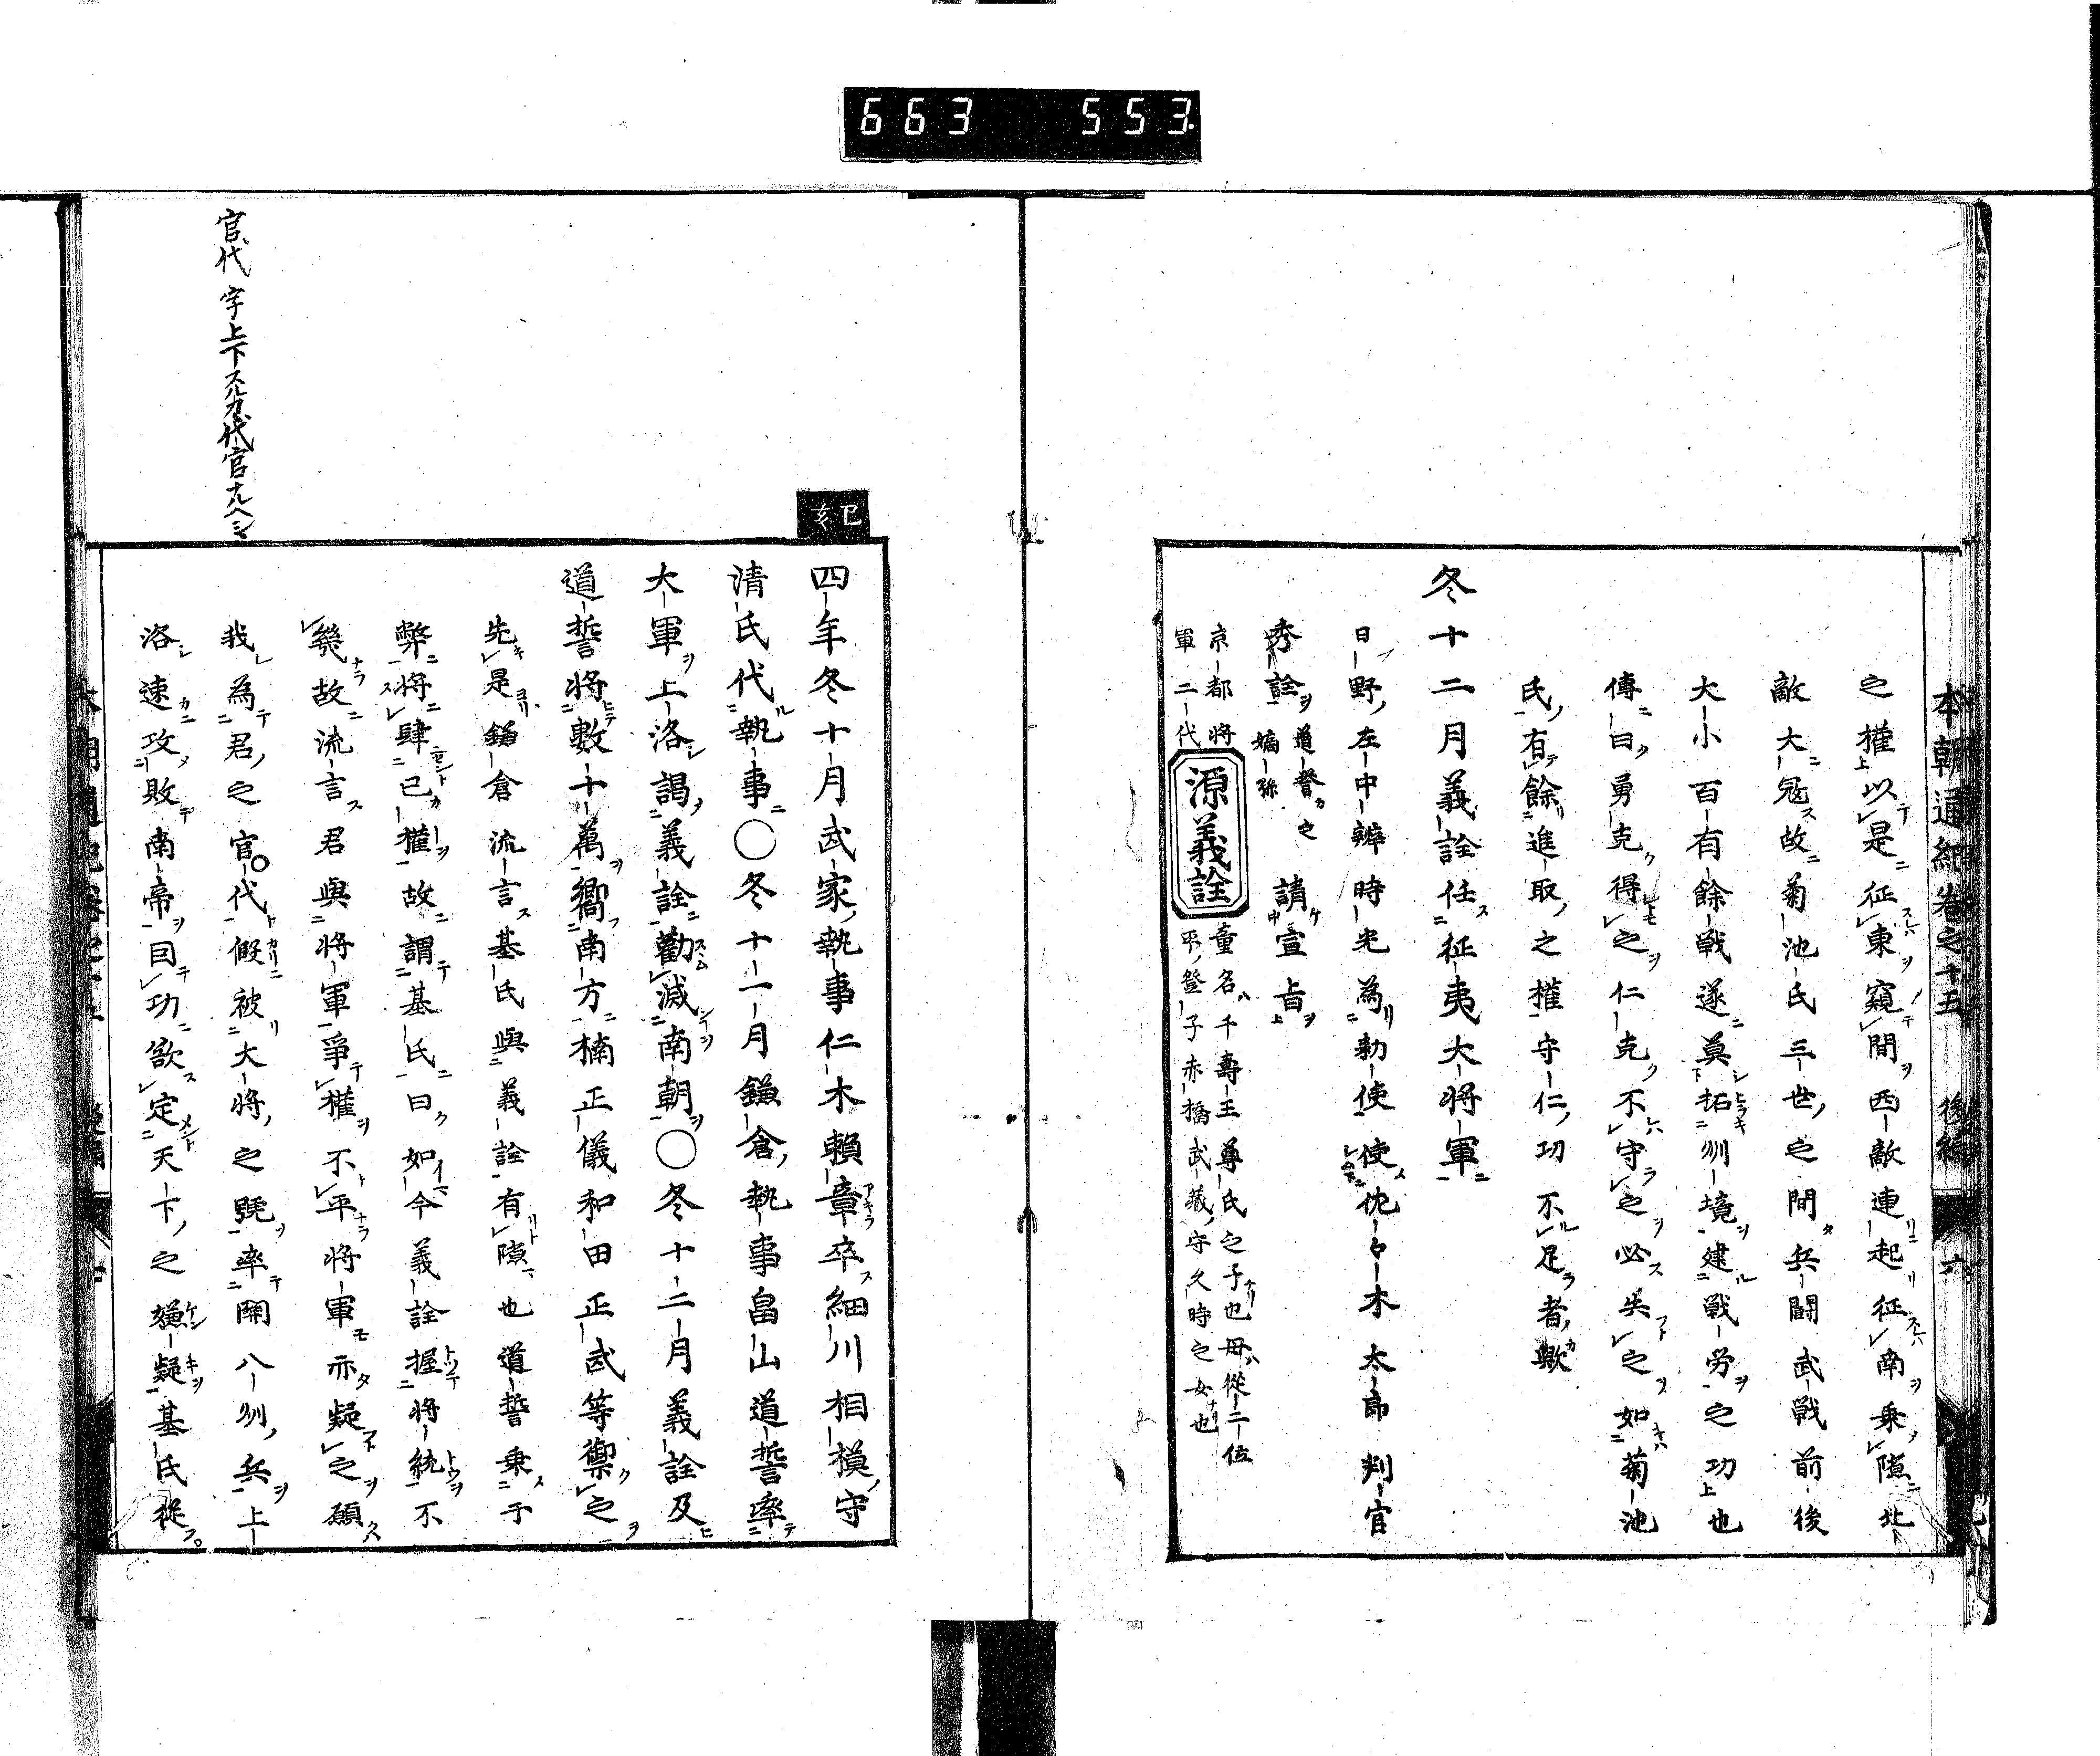 663 553
本朝通紀卷之十五 後編 六
之權以是征東窺間西敵連起征南乘隙北
敵大冦故菊池氏三世之間兵鬪武戰前後
大小百有餘戰遂莫拓州境建戰労之功也
傳曰勇克得之仁克不守之必失之如菊池
氏有餘進取之權守仁功不足者歟
冬十二月義詮任征夷大将軍
日野左中辨時光為勅使使佐々木太郎判官
秀詮道誉之嫡孫請宣旨
京都将軍二代
源義詮
童名千壽王尊氏之子也母從二位
平登子赤橋武藏守久時之女也
己亥
四年冬十月武家執事仁木頼章卒細川相模守
清氏代執事〇冬十一月鎌倉執事畠山道誓率
大軍上洛謁義詮勸滅南朝〇冬十二月義詮及
道誓将數十萬嚮南方楠正儀和田正武等禦之
先是鎌倉流言基氏與義詮有隙也道誓乗于
弊将肆己權故謂基氏曰如今義詮握将統不
幾故流言君與将軍爭權不平将軍亦疑之願
我為君之官代假被大将之號率関八州兵上
洛速攻敗南帝目功欲定天下之嫌疑基氏從
官代字上下スルカ代官ナルヘシ